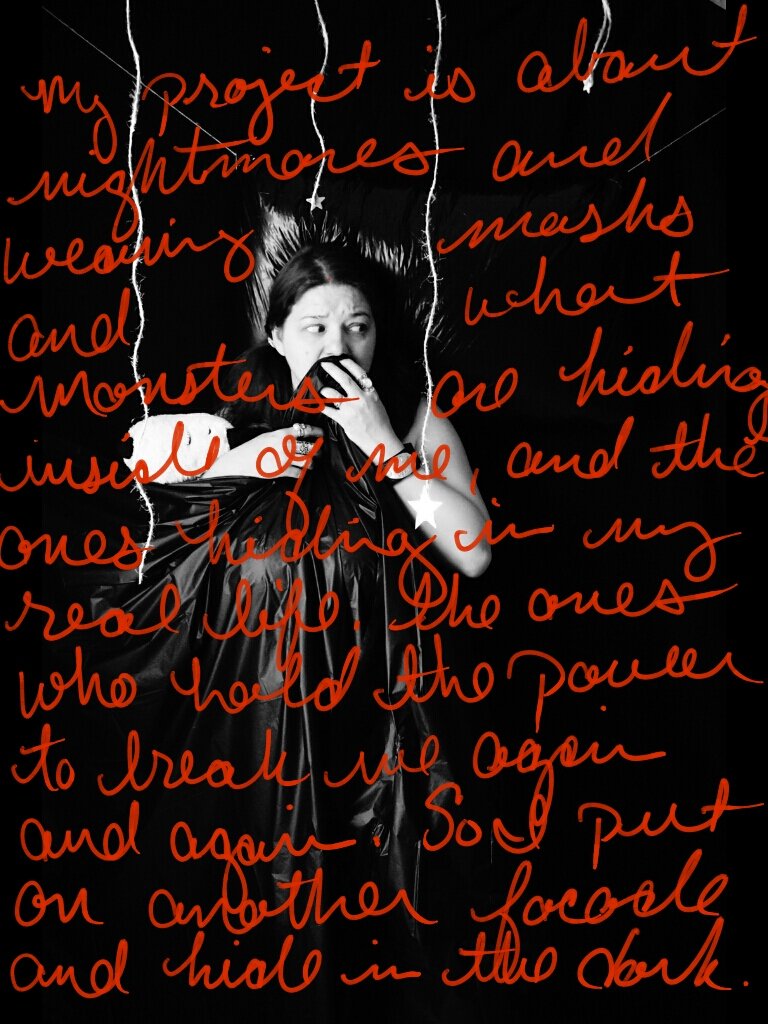 my project is about
nightmares and
wearing masks
and what
monsters are hiding
inside of me, and the
ones hiding in my
real life. the ones
who hold the power
to break me again
and again. So I put
on another facade
and hide in the dark.